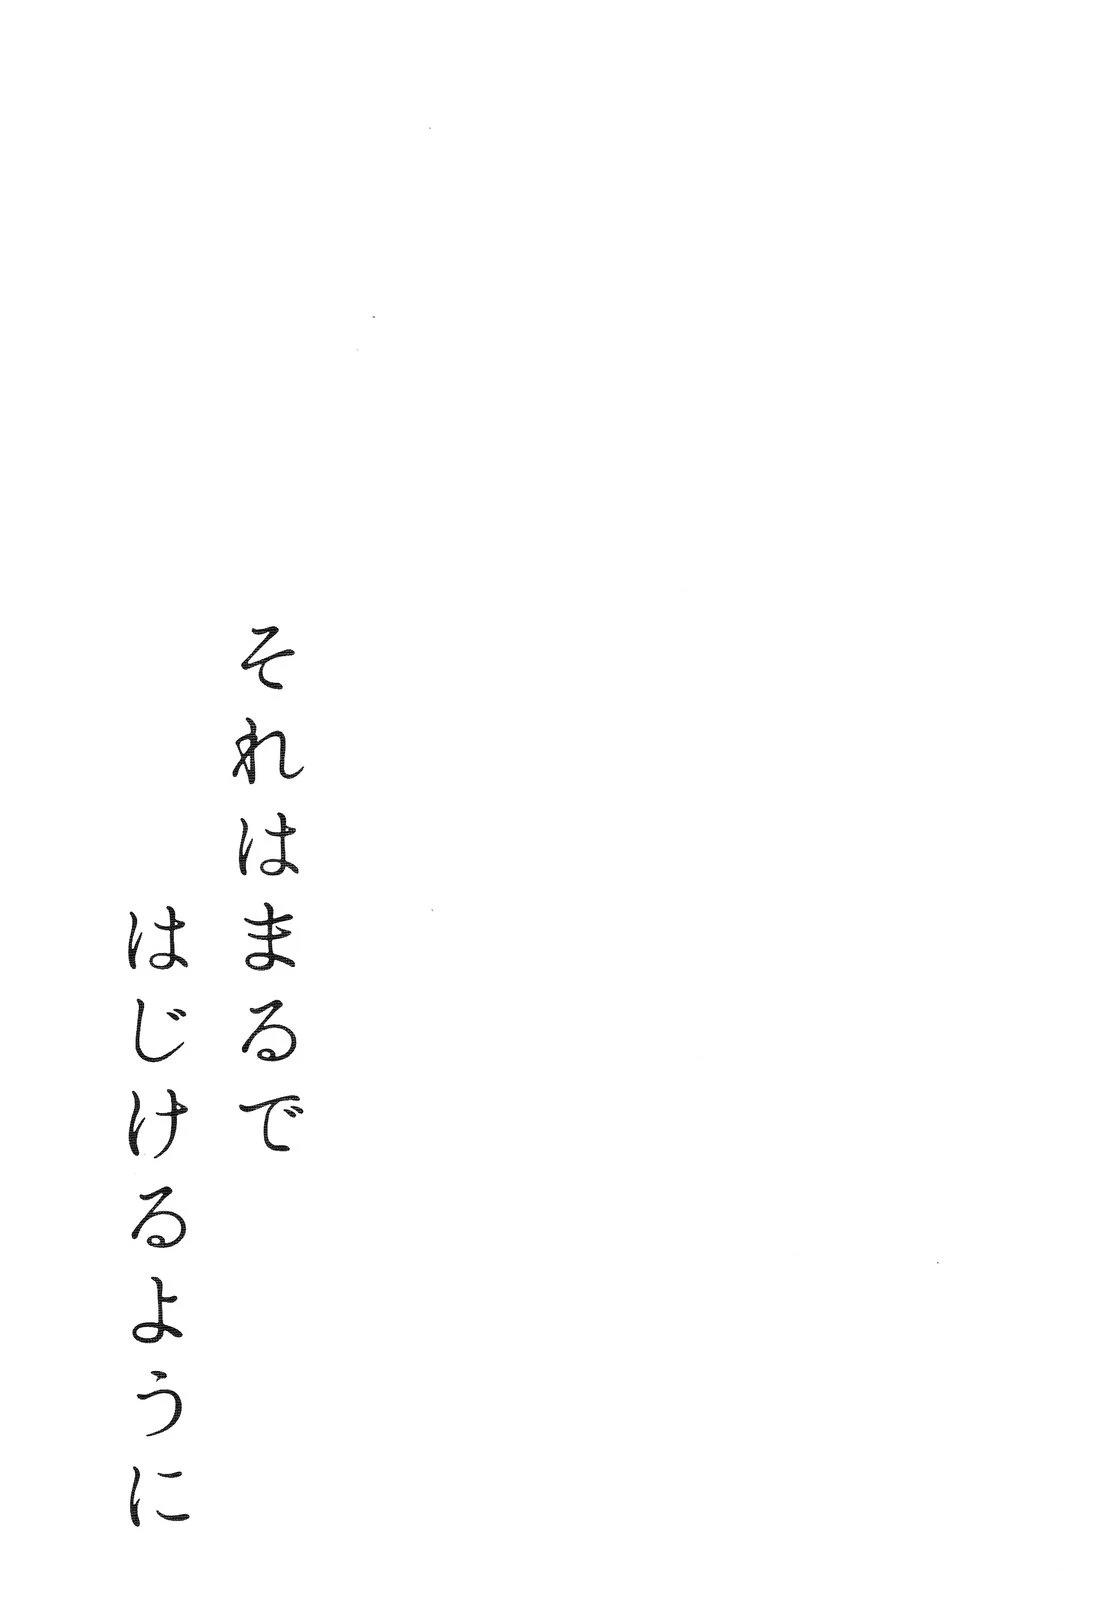 それはまるで
はじけるように